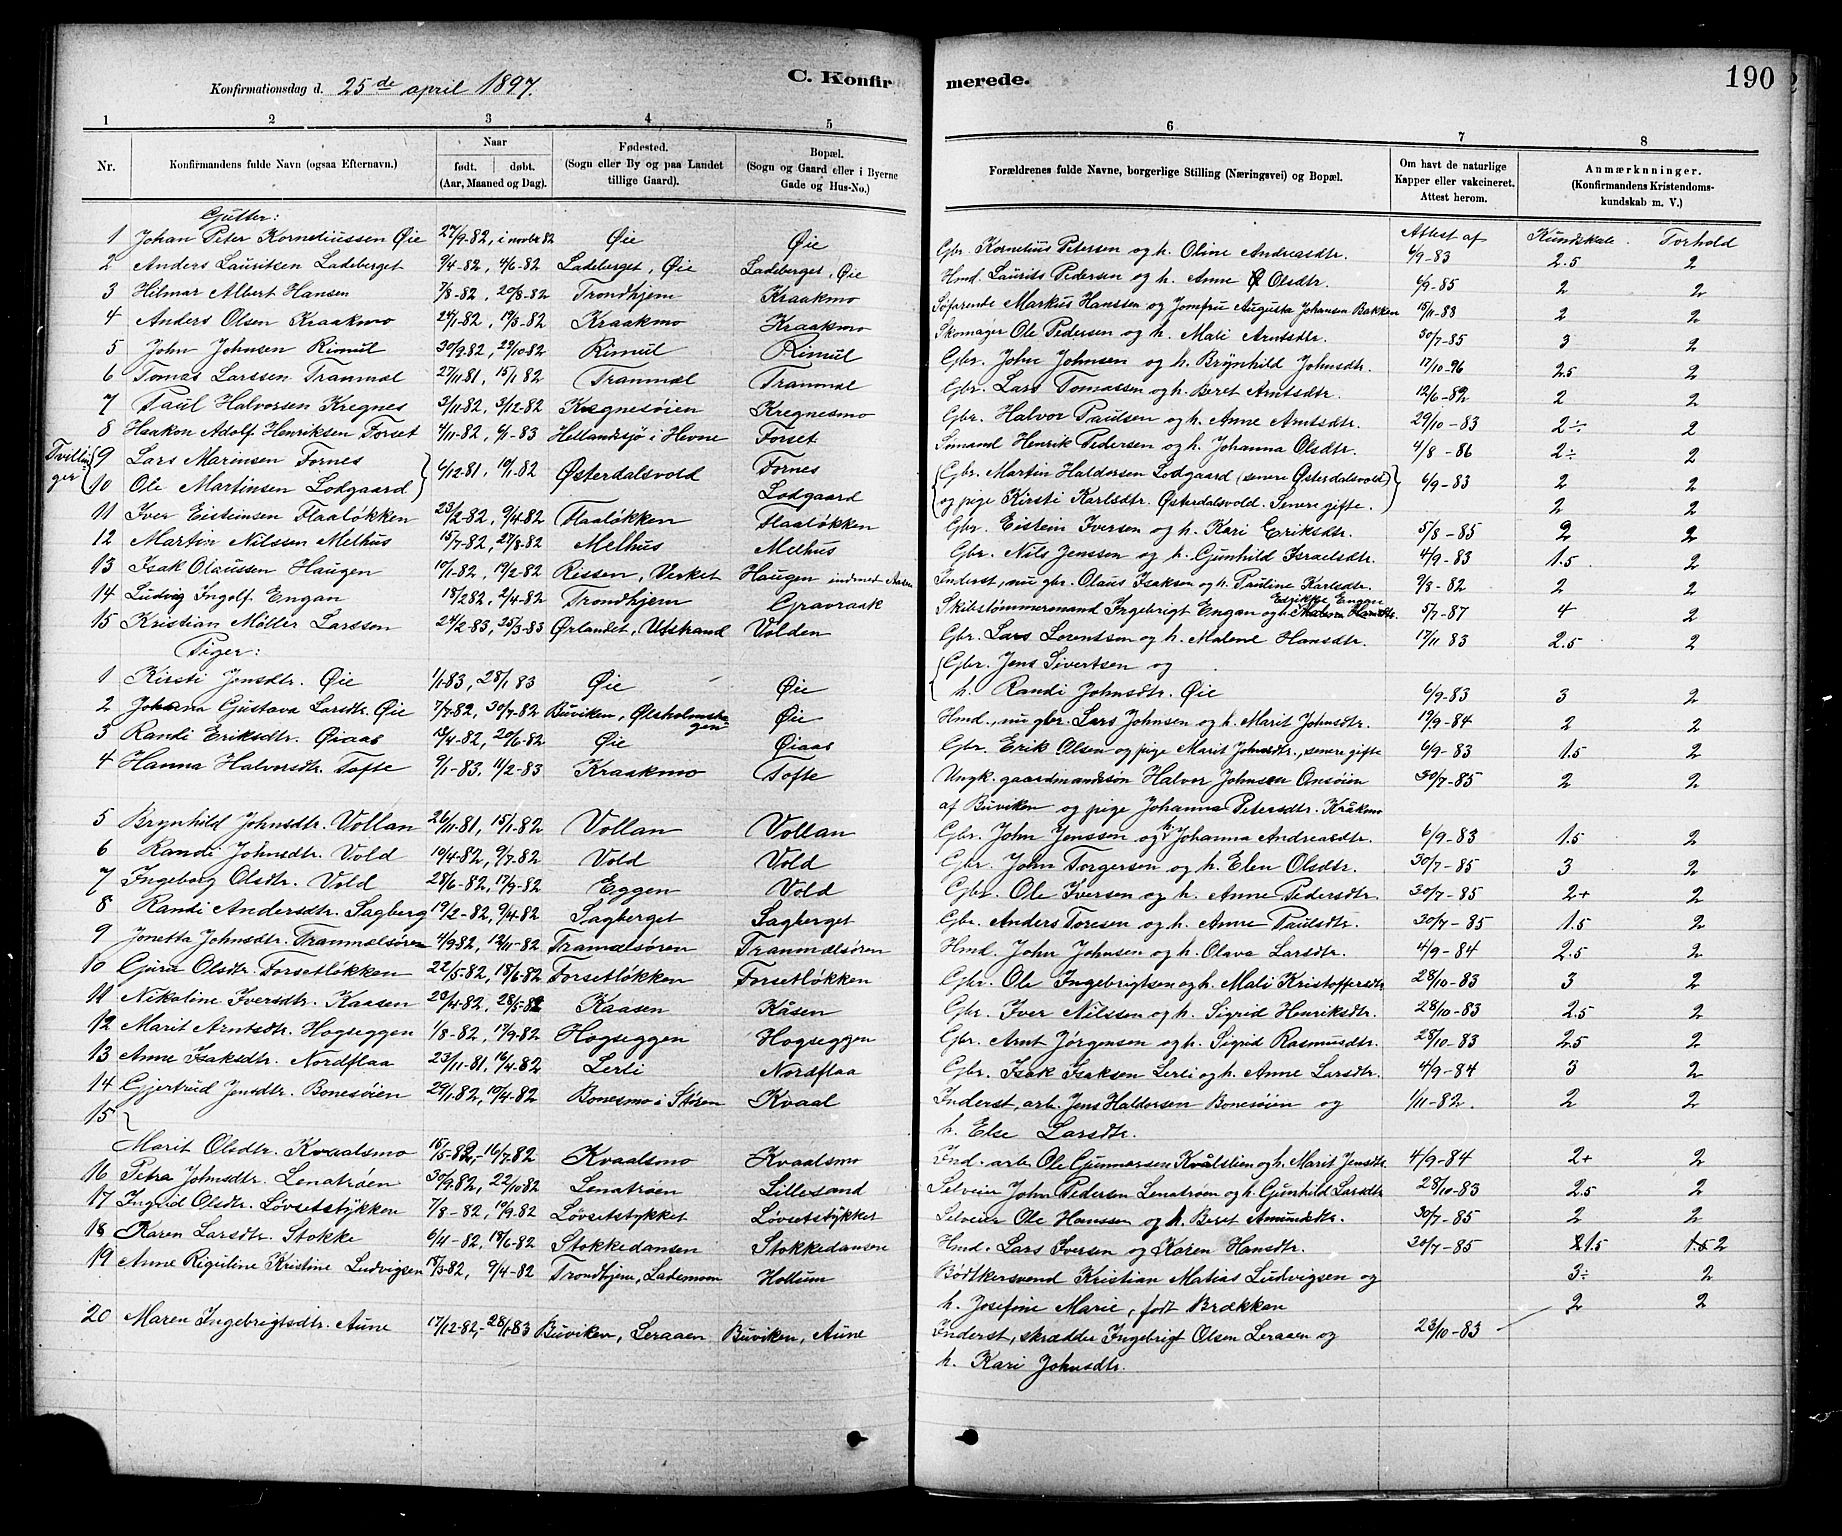 C. Konfirmerede.
190
Konfirmationsdag d. 25de april 1897.
1 2 3 4 5 6 7 8
Nr. Konfirmandens fulde Navn (ogsaa Efternavn.) Naar født. døbt. (Aar, Maaned og Dag). Fødested. (Sogn eller By og paa Landet tillige Gaard). Bopæl. (Sogn og Gaard eller i Byerne Gade og Hus-No.) Forældrenes fulde Navne, borgerlige Stilling (Næringsvei) og Bopæl. Om havt de naturlige Kapper eller vakcineret. Attest herom. Anmærkninger. (Konfirmandens Kristendomskundskab m. V.)
Gutter: Attest af Kundskab. Forhold
1 Johan Peter Korneliussen Øie 27/9-82, i novbr 82 Øie Øie Gbr. Kornelius Petersen og h. Oline Andreasdtr. 6/9-83 2.5 2
2 Anders Lauritsen Ladeberget 9/4-82, 4/6-82 Ladeberget, Øie Ladeberget, Øie Hmd. Laurits Pedersen og h. Anne Olsdtr. 6/9-85 2 2
3 Hilmar Albert Hansen 7/8-82, 20/8-82 Trondhjem Kraakmo Søfarende Markus Hanssen og Jomfru Augusta Johansen Bakken 15/11-83 2 2
4 Anders Olsen Kraakmo 24/1-82, 19/3-82 Kraakmo Kraakmo Skomager Ole Pedersen og h. Mali Arntsdtr. 30/7-85 3 2
5 John Johnsen Rimul 30/9-82, 29/10-82 Rimul Rimul Gbr. John Johnsen og h. Brynhild Johnsdtr. 17/10-96 2.5 2
6 Tomas Larssen Tranmæl 27/11 81, 15/1 82 Tranmæl Tranmæl Gbr. Lars Tomassen og h. Beret Arntsdtr. 12/6-82 2 2
7 Paul Halvorsen Kregnes 3/11-82, 3/12-82 Kregnesøien Kregnesmo Gbr. Halvor Paulsen og h. Anne Arntsdtr. 29/10-83 2÷ 2
8 Haakon Adolf Henriksen Forset 4/11-82, 6/1-83 Hellandsjø i Hevne Forset Sømand Henrik Pedersen og h. Johanna Olsdtr. 4/8-86 2÷ 2
Tvillinger 9 Lars Marinsen Fornes 6/12-81, 10/1-82 Østerdalsvold Fornes Gbr. Martin Haldorsen Lodgaard (senere Østerdalsvold) 6/9-83 2 2
10 Ole Martinsen Lodgaard Lodgaard og pige Kirsti Karlsdtr. Østerdalsvold. Senere gifte. 2 2
11 Iver Eisteinsen Flaaløkken 23/2-82, 9/4-82 Flaaløkken Flaaløkken Gbr. Eistein Iversen og h. Kari Eriksdtr. 5/8-85 2 2
12 Martin Nilssen Melhus 15/7-82, 27/8-82 Melhus Melhus Gbr. Nils Jenssen og h. Gunhild Israelsdtr. 4/9-83 1.5 2
13 Isak Olaussen Haugen 10/1-82, 19/2-82 Rissen, Verket Haugen Inderst, nu gbr. Olaus Isaksen og h. Pauline Karlsdtr. 9/3-82 2 2
14 Ludvig Ingolf Engan 18/2 82, 2/4-82 Trondhjem Gravraak Skibstømmermand Ingebrigt Engan og h. Engan 5/7-87 4 2
15 Kristian Möller Larssen 24/2-83, 25/3-83 Ørlandet, Utstrand Volden Gbr. Lars Lorentsen og h. Malene Hansdtr. 17/11 83 2.5 2
Piger:
1 Kirsti Jensdtr. Øie 1/1-83, 28/1 83 Øie Øie Gbr. Jens Sivertsen og
h. Randi Johnsdtr. Øie 6/9-83 3 2
2 Johana Gustava Larsdtr. Øie 7/7-82, 30/7-82 Buviken, Ølsholmshagen Øie Hmd., nu gbr. Lars Johnsen og h. Marit Johnsdtr. 19/9-84 2 2
3 Randi Eriksdtr. Øiaas 12/4-82, 20/6-82 Øie Øiaas Gbr. Erik Olsen og pige Marit Johnsdtr., senere gifte 6/9-83 1.5 2
4 Hanna Halvorsdtr. Tofte 9/1-83, 11/2-83 Kraakmo Tofte Ungk. gaardmandssøn Halvor Johnsen Onsøien 30/7-85 2 2
af Buviken og pige Johanna Petersdtr. Kråkmo
5 Brynhild Johnsdtr. Vollan 26/11-81, 15/1-82 Vollan Vollan Gbr. John Jenssen og h. Johanna Andreasdtr. 6/9-83 1.5 2
6 Randi Johnsdtr. Vold 10/4-82, 9/7-82 Vold Vold Gbr. John Torgersen og h. Elen Olsdtr. 30/7-85 3 2
7 Ingeborg Olsdtr. Vold 28/6-82, 17/9-82 Eggen Vold Gbr. Ole Iversen og h. Anne Pedersdtr. 30/7-85 2+ 2
8 Randi Andersdtr. Sagberg 19/2-82, 9/4-82 Sagberget Sagberget Gbr. Anders Toresen og h. Anne Paulsdtr. 30/7-85 1.5 2
9 Jonetta Johnsdtr. Tranmælsøren 4/9-82, 12/11-82 Tramælsøren Tranmælsøren Hmd. John Johnsen og h. Olava Larsdtr. 4/9-84 2.5 2
10 Guru Olsdtr. Forsetløkken 22/5-82, 18/6-82 Forsetløkken Forsetløkken Gbr. Ole Ingebrigtsen og h. Mali Kristoffersdtr 28/10-83 3 2
11 Nikoline Iversdtr. Kaasen 23/4-82, 28/5-82 Kaasen Kåsen Gbr. Iver Nilssen og h. Sigrid Henriksdtr. 28/10-83 2.5 2
12 Marit Arntsdtr. Hogseggen 1/8-82, 17/9-82 Hogseggen Hogseggen Gbr. Arnt Jørgensen og h. Sigrid Rasmusdtr. 28/10-83 2.5 2
13 Anne Isaksdtr. Nordflaa 23/11-81, 16/4-82 Lerli Nordflaa Gbr. Isak Isaksen Lerli og h. Anne Larsdtr. 4/9-84 3 2
14 Gjertrud Jensdtr. Bonesøien 29/1-82, 10/4-82 Bonesmo i Støren Kvaal Inderst, arb. Jens Haldorsen Bonesøien og 1/11-82. 2 2
15 h. Else Larsdtr.
Marit Olsdtr. Kvaalsmo 15/5-82, 16/7-82 Kvaalsmo Kvaalsmo Ind. arb. Ole Gunnarsen Kvålslien og h. Marit Jensdtr 4/9-84 2+ 2
16 Petra Johnsdtr. Lenatrøen 30/9-82, 22/10 82 Lenatrøen Lillesand Selveier John Pedersen Lenatrøen og h. Gunhild Larsdtr 28/10-83 2.5 2
17 Ingrid Olsdtr. Løvsetstykken 7/8-82, 10/9-82 Løvsetstykket Løvsetstykket Selveier Ole Hanssen og h. Beret Amundsdtr. 30/7-85 2 2
18 Karen Larsdtr. Stokke 6/4-82, 18/6-82 Stokkedansen Stokkedansen Hmd. Lars Iversen og Karen Hansdtr. 30/7-85 1.5 1.5 2
19 Anne Regiline Kristine Ludvigsen 18/3-82, 9/4-82 Trondhjem, Lademoen Hollum Bødtkersvend Kristian Matias Ludvigsen og 3÷ 2
h. Josefine Marie, født Brækken 2 2
20 Maren Ingebrigtsdtr. Aune 17/12-82, 28/1-83 Buviken, Leraaen Buviken, Aune Inderst, skrædder Ingebrigt Olsen Leraaen og 23/10-83
h. Kari Johnsdtr.